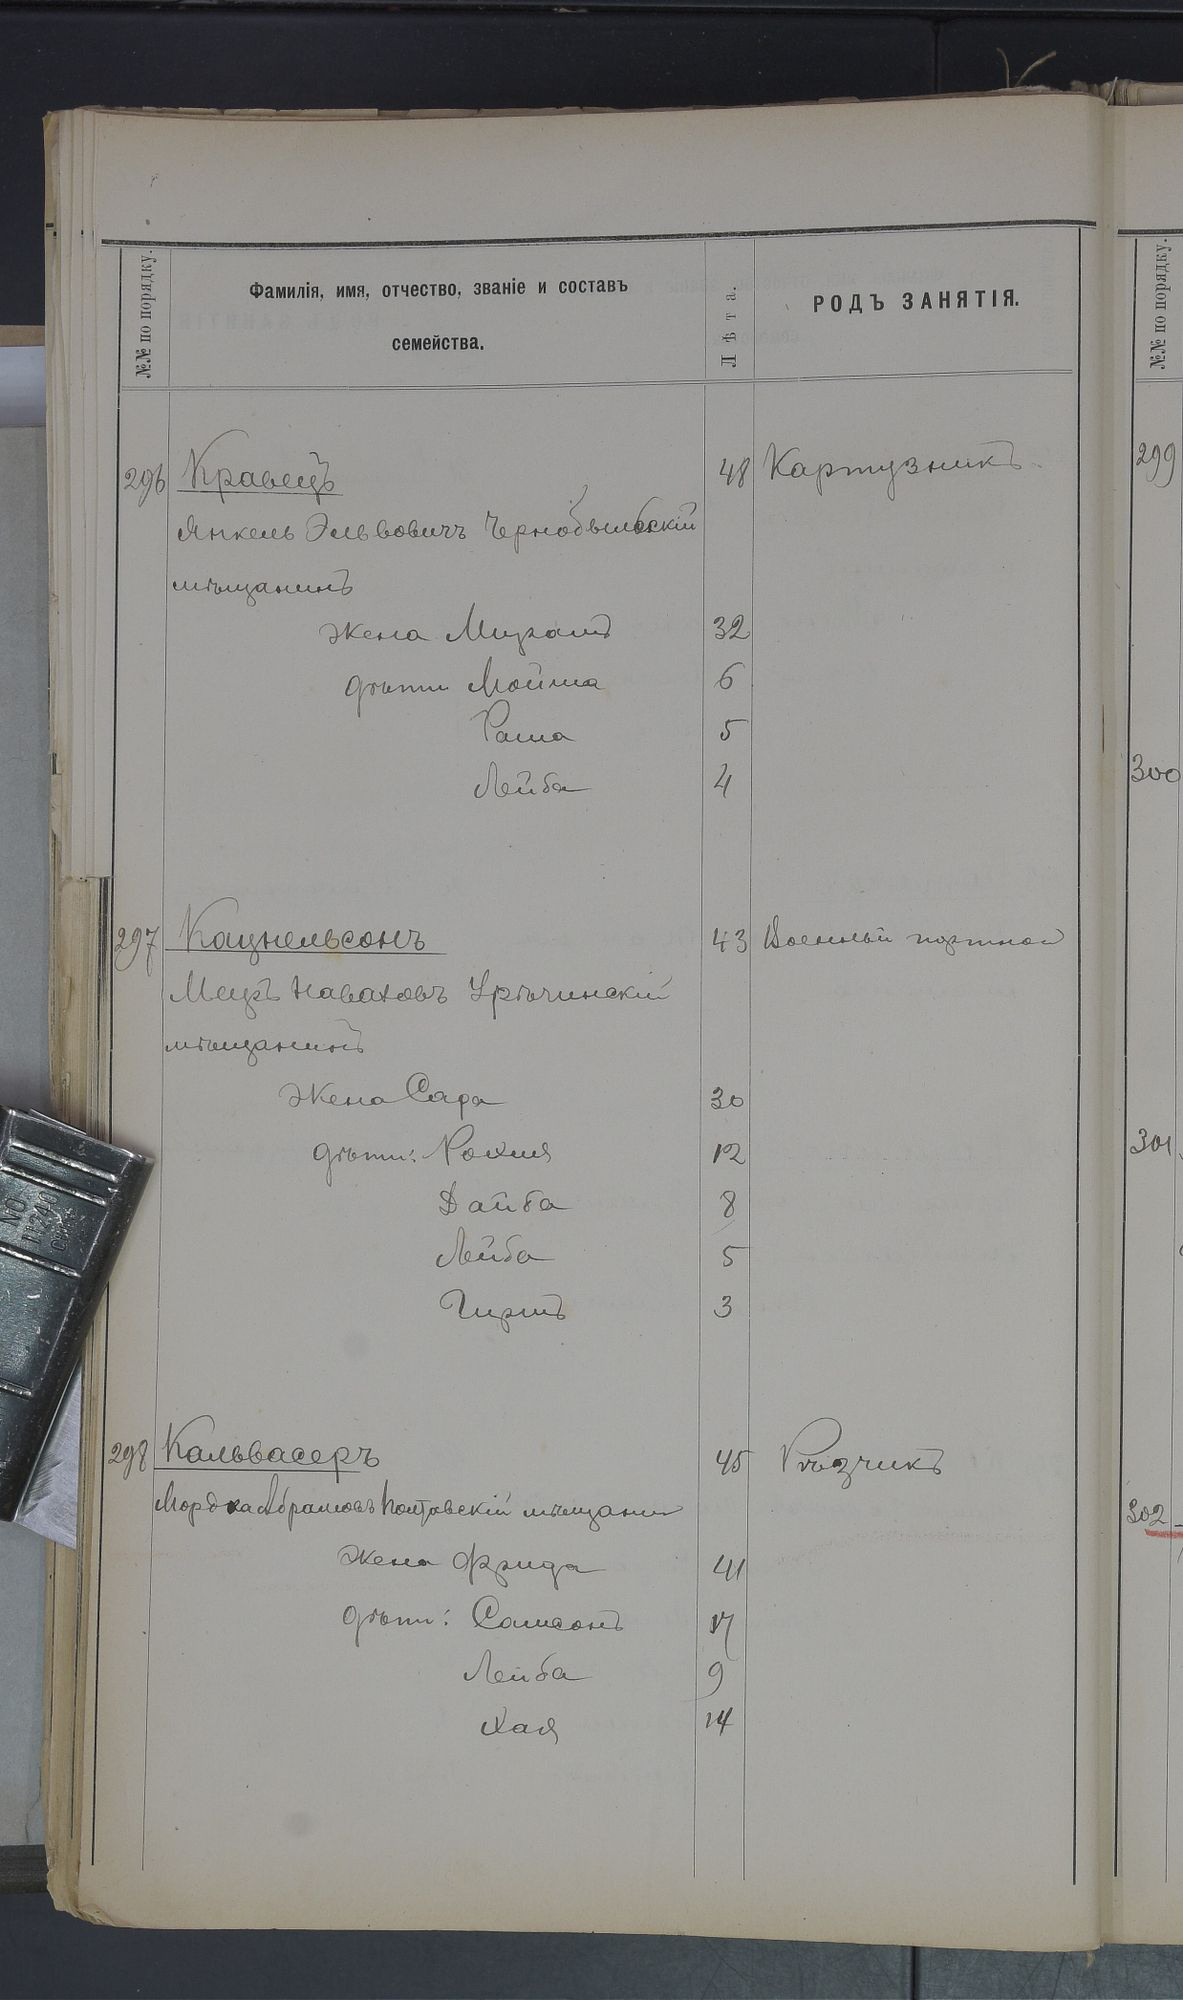 №№ по порядку.
Фамилія, имя, отчество, званіе и составъ
семейства.
Лѣта.
РОДЪ ЗАНЯТІЯ.
296 Кравецъ 48 Картузникъ
Янкель Эльвовичъ Чернобыльскій
мѣщанинъ
Жена Мирамъ 32
дѣти Мойша 6
Раша 5
Лейба 4
297 Кацнельсонъ 43 Военный портной
Урѣчинскій
мѣщанинъ
Жена Сара 30
дѣти: Рохля 12
Дайба 8
Лейба 5
Гиршъ 3
298 Кальвасеръ 45 Рѣзчикъ
Мордка Абрамовъ Полтавскій мѣщанин
Жена Фрида 41
дѣти: Самсонъ 17
Лейба 9
Хая 14
№№ по порядку.
299
300
301
302
NO.
11240